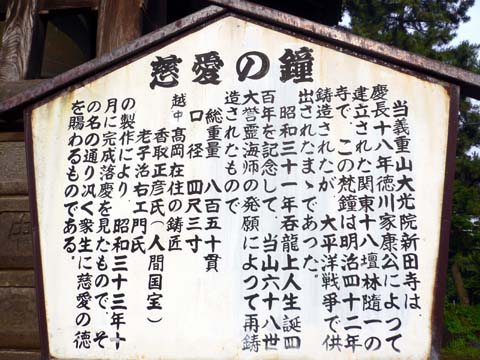 慈愛の鐘
当義重山大光院新田寺は、
慶長十八年徳川家康公によつて
建立された関東十八壇林随一の
寺で、この梵鐘は明治四十二年
鋳造されたが、太平洋戦争で供
出されたまゝであった。
昭和三十一年呑龍上人生誕四
百年を記念して、当山六十八世
大誉霊海師の発願によつて再鋳
造されたもので
総重量 八百五十貫
口径 四尺三寸
越中 高岡在住の鋳匠
香取正彦氏(人間国宝)
老子治右エ門氏
の製作により、昭和三十三年十
月に完成落慶を見たもので、そ
の名の通り汎く衆生に慈愛の徳
を賜わるものである。